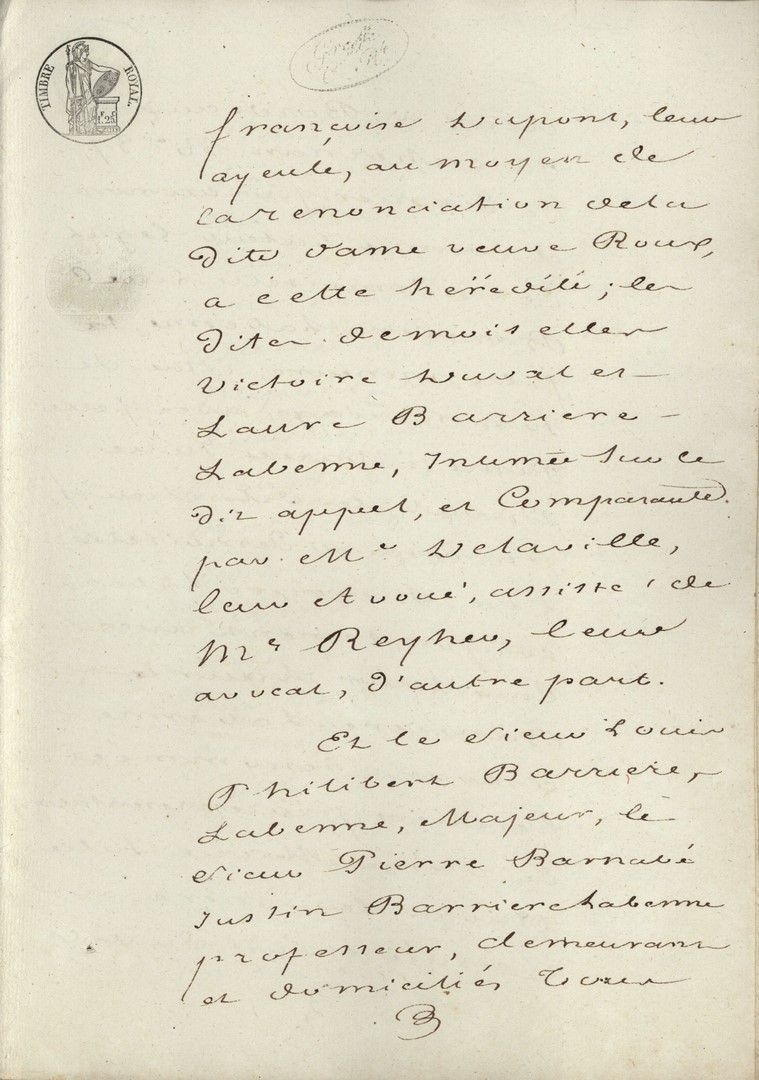 TIMBRE ROYAL.
1.25
françoise Dupont, leur
ayeule, au moyen de
la renonciation de la
dite dame veuve Roux,
a cette hérédité; les
dites demoiselles
Victoire Duval et
Laure Barriere
Labenne, Intimées Sur ce
dit appel, et Comparante
par Me Delaville,
leur Avoué, assisté de
Mr Reyher, leur
avocat, d'autre part.
Et le Sieur Louis
Philibert Barriere,
Labenne, Majeur, le
Sieur Pierre Barnabé
Justin Barriere Labenne
professeur, demeurant
et domiciliés tous